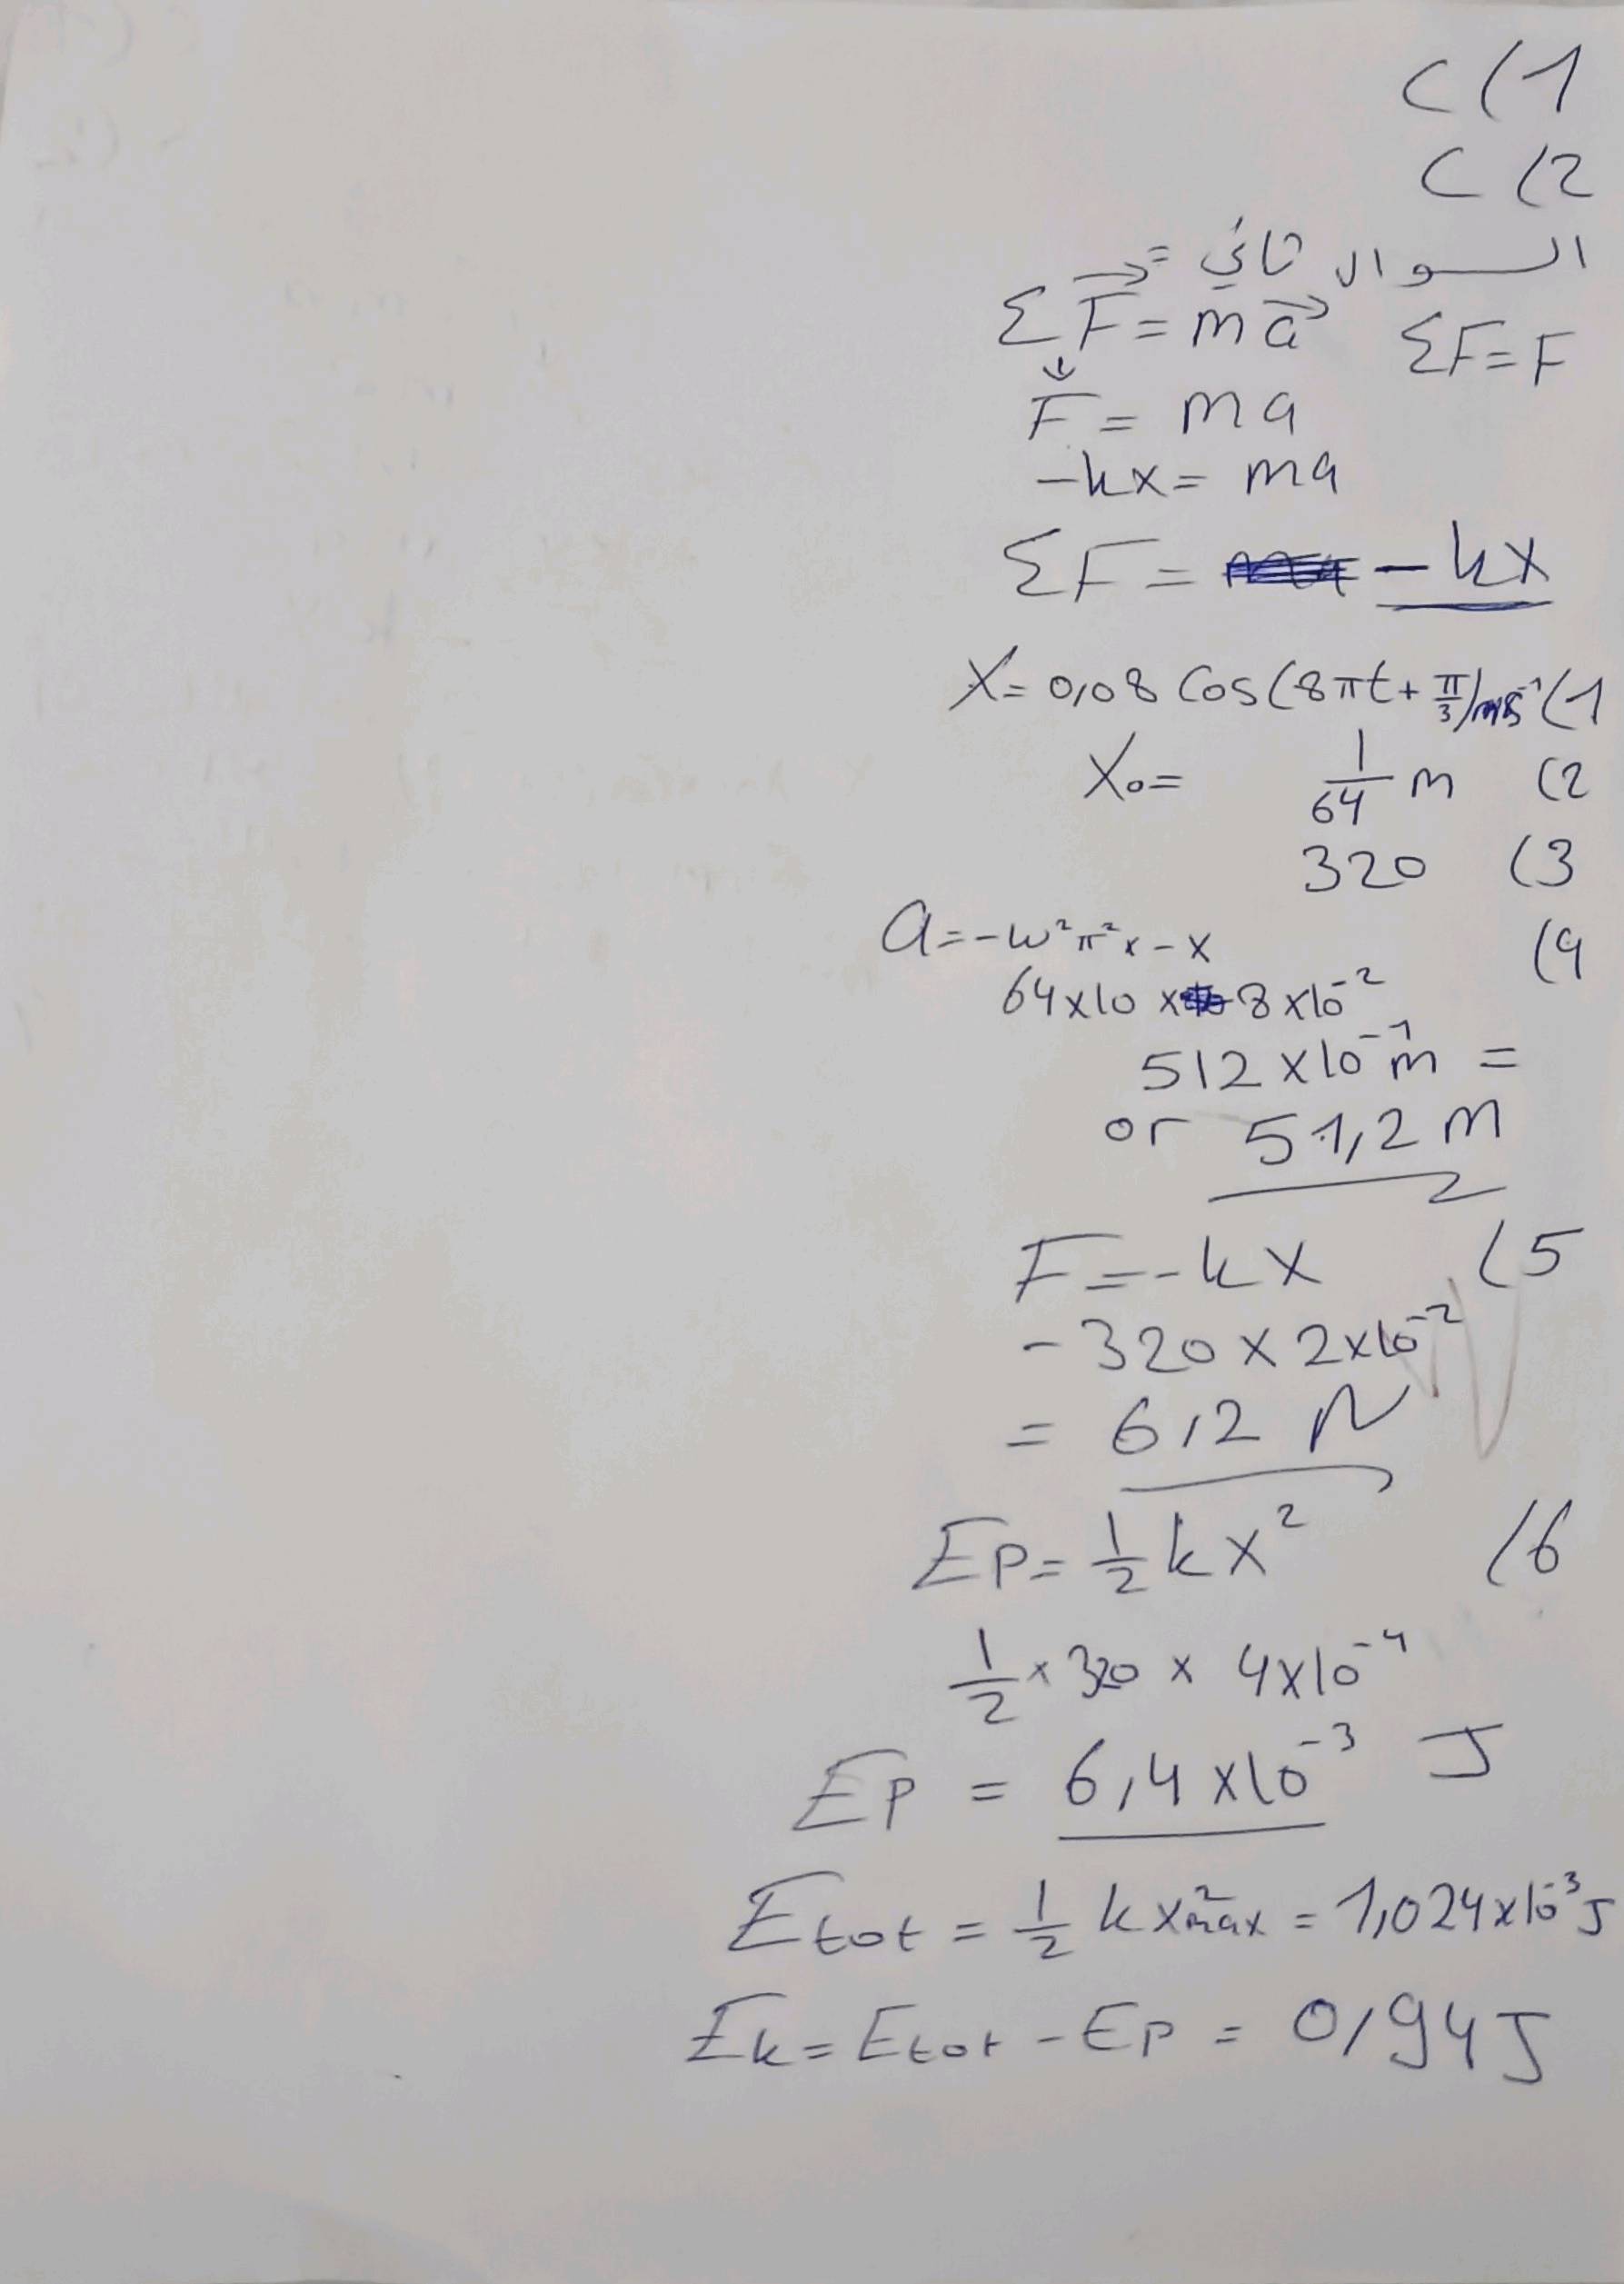 C (1
C (2
السوال تاني =
ΣF⃗ = ma⃗ ΣF = F
↓
F = ma
-kx = ma
ΣF = -kx
X = 0,08 Cos(8πt + π/3) (1
X₀ = 1/64 m (2
320 (3
a = -w²π² x - x (4
64x10 x 8 x10⁻²
512 x10⁻¹ m =
or 51,2 m
F = -kx (5
- 320 x 2x10⁻²
= 6,2 N
Ep = 1/2 kx² (6
1/2 x 320 x 4x10⁻⁴
Ep = 6,4 x10⁻³ J
Etot = 1/2 k x²max = 1,024x10⁻³ J
Ek = Etot - Ep = 0,94 J